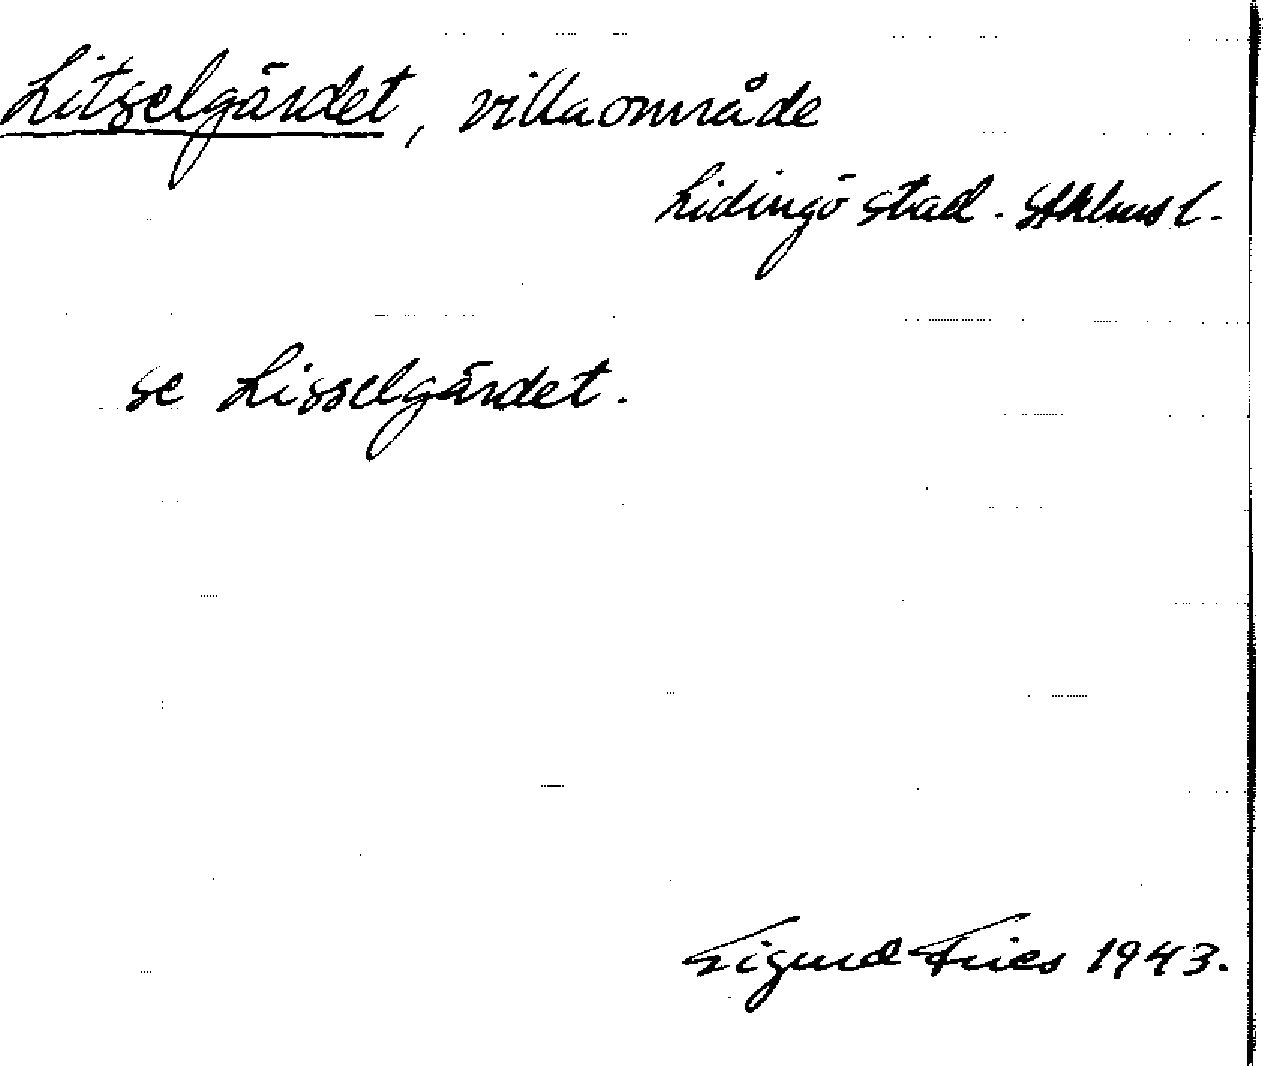 Litselgärdet, villaområde
Lidingö stad. Sthlms l.
se Lisselgärdet.
Sigurd Fries 1943.